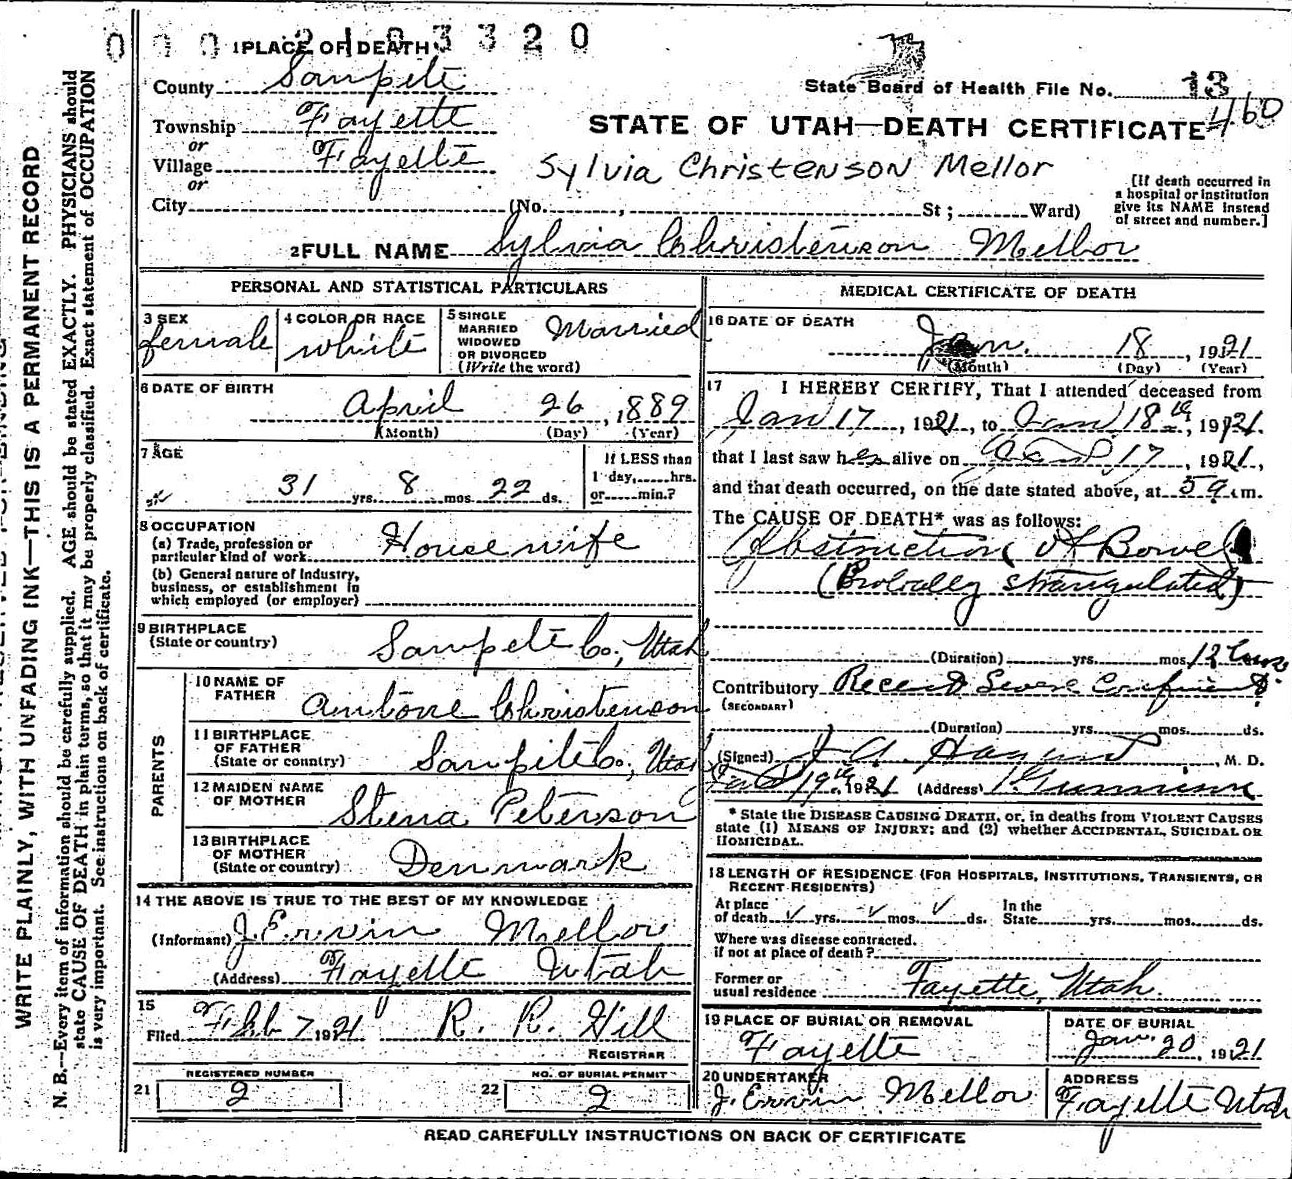 0 0 0 2 1 0 3 3 2 0
1 PLACE OF DEATH
County Sanpete
State Board of Health File No. 13
460
Township Fayette
or
Village Fayette
or
STATE OF UTAH—DEATH CERTIFICATE
Sylvia Christenson Mellor
City (No. , St ; Ward)
[If death occurred in
a hospital or institution
give its NAME instead
of street and number.]
2 FULL NAME Sylvia Christenson Mellor
PERSONAL AND STATISTICAL PARTICULARS
3 SEX
female
4 COLOR OR RACE
white
5 SINGLE
MARRIED
WIDOWED
OR DIVORCED
(Write the word)
Married
6 DATE OF BIRTH
April 26, 1889
(Month) (Day) (Year)
7 AGE
31 yrs. 8 mos. 22 ds.
If LESS than
1 day, hrs.
or min.?
8 OCCUPATION
(a) Trade, profession or
particular kind of work
Housewife
(b) General nature of industry,
business, or establishment in
which employed (or employer)
9 BIRTHPLACE
(State or country)
Sanpete Co., Utah
PARENTS
10 NAME OF
FATHER
Antone Christenson
11 BIRTHPLACE
OF FATHER
(State or country)
Sanpete Co., Utah
12 MAIDEN NAME
OF MOTHER
Stena Peterson
13 BIRTHPLACE
OF MOTHER
(State or country)
Denmark
14 THE ABOVE IS TRUE TO THE BEST OF MY KNOWLEDGE
(Informant) J. Ervin Mellor
(Address) Fayette Utah
15
Filed Feb 7 1921 R. R. Hill
REGISTRAR
21 REGISTERED NUMBER
2
22 NO. OF BURIAL PERMIT
2
MEDICAL CERTIFICATE OF DEATH
16 DATE OF DEATH
Jan. 18, 1921
(Month) (Day) (Year)
17 I HEREBY CERTIFY, That I attended deceased from
Jan 17, 1921, to Jan 18th, 1921.
that I last saw her alive on Jan 17, 1921,
and that death occurred, on the date stated above, at 5 a. m.
The CAUSE OF DEATH* was as follows:
Obstruction of Bowel
(Probably strangulated)
(Duration) yrs. mos.
Contributory Recent Severe Confinement
(SECONDARY)
(Duration) yrs. mos. ds.
(Signed) J. A. , M. D.
Jan 19th 1921 (Address) Gunnison
* State the DISEASE CAUSING DEATH, or, in deaths from VIOLENT CAUSES
state (1) MEANS OF INJURY; and (2) whether ACCIDENTAL, SUICIDAL OR
HOMICIDAL.
18 LENGTH OF RESIDENCE (FOR HOSPITALS, INSTITUTIONS, TRANSIENTS, OR
RECENT RESIDENTS)
At place
of death yrs. mos. ds.
In the
State yrs. mos. ds.
Where was disease contracted.
if not at place of death?
Former or
usual residence Fayette, Utah.
19 PLACE OF BURIAL OR REMOVAL
Fayette
DATE OF BURIAL
Jan. 20, 1921
20 UNDERTAKER
J. Ervin Mellor
ADDRESS
Fayette Utah
READ CAREFULLY INSTRUCTIONS ON BACK OF CERTIFICATE
WRITE PLAINLY, WITH UNFADING INK—THIS IS A PERMANENT RECORD
N. B.—Every item of information should be carefully supplied. AGE should be stated EXACTLY. PHYSICIANS should
state CAUSE OF DEATH in plain terms, so that it may be properly classified. Exact statement of OCCUPATION
is very important. See instructions on back of certificate.